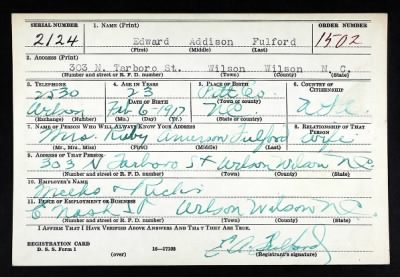 SERIAL NUMBER 1. NAME (Print) ORDER NUMBER
2124 Edward Addison Fulford 1502
(First) (Middle) (Last)
2. ADDRESS (Print)
303 N. Tarboro St. Wilson Wilson N. C.
(Number and street or R. F. D. number) (Town) (County) (State)
3. TELEPHONE 4. AGE IN YEARS 5. PLACE OF BIRTH 6. COUNTRY OF CITIZENSHIP
2530 23 Pitt Co.
DATE OF BIRTH (Town or county)
Wilson Feb 6-1917 N C
(Exchange) (Number) (Mo.) (Day) (Yr.) (State or country)
7. NAME OF PERSON WHO WILL ALWAYS KNOW YOUR ADDRESS 8. RELATIONSHIP OF THAT PERSON
Mrs. Ruby Fulford wife
(Mr., Mrs., Miss) (First) (Middle) (Last)
9. ADDRESS OF THAT PERSON
303 N Tarboro St Wilson Wilson N.C.
(Number and street or R. F. D. number) (Town) (County) (State)
10. EMPLOYER'S NAME
11. PLACE OF EMPLOYMENT OR BUSINESS
E Nash St Wilson Wilson N.C.
(Number and street or R. F. D. number) (Town) (County) (State)
I AFFIRM THAT I HAVE VERIFIED ABOVE ANSWERS AND THAT THEY ARE TRUE.
REGISTRATION CARD
D. S. S. Form 1 16-17105 E. A. Fulford
(Registrant's signature)